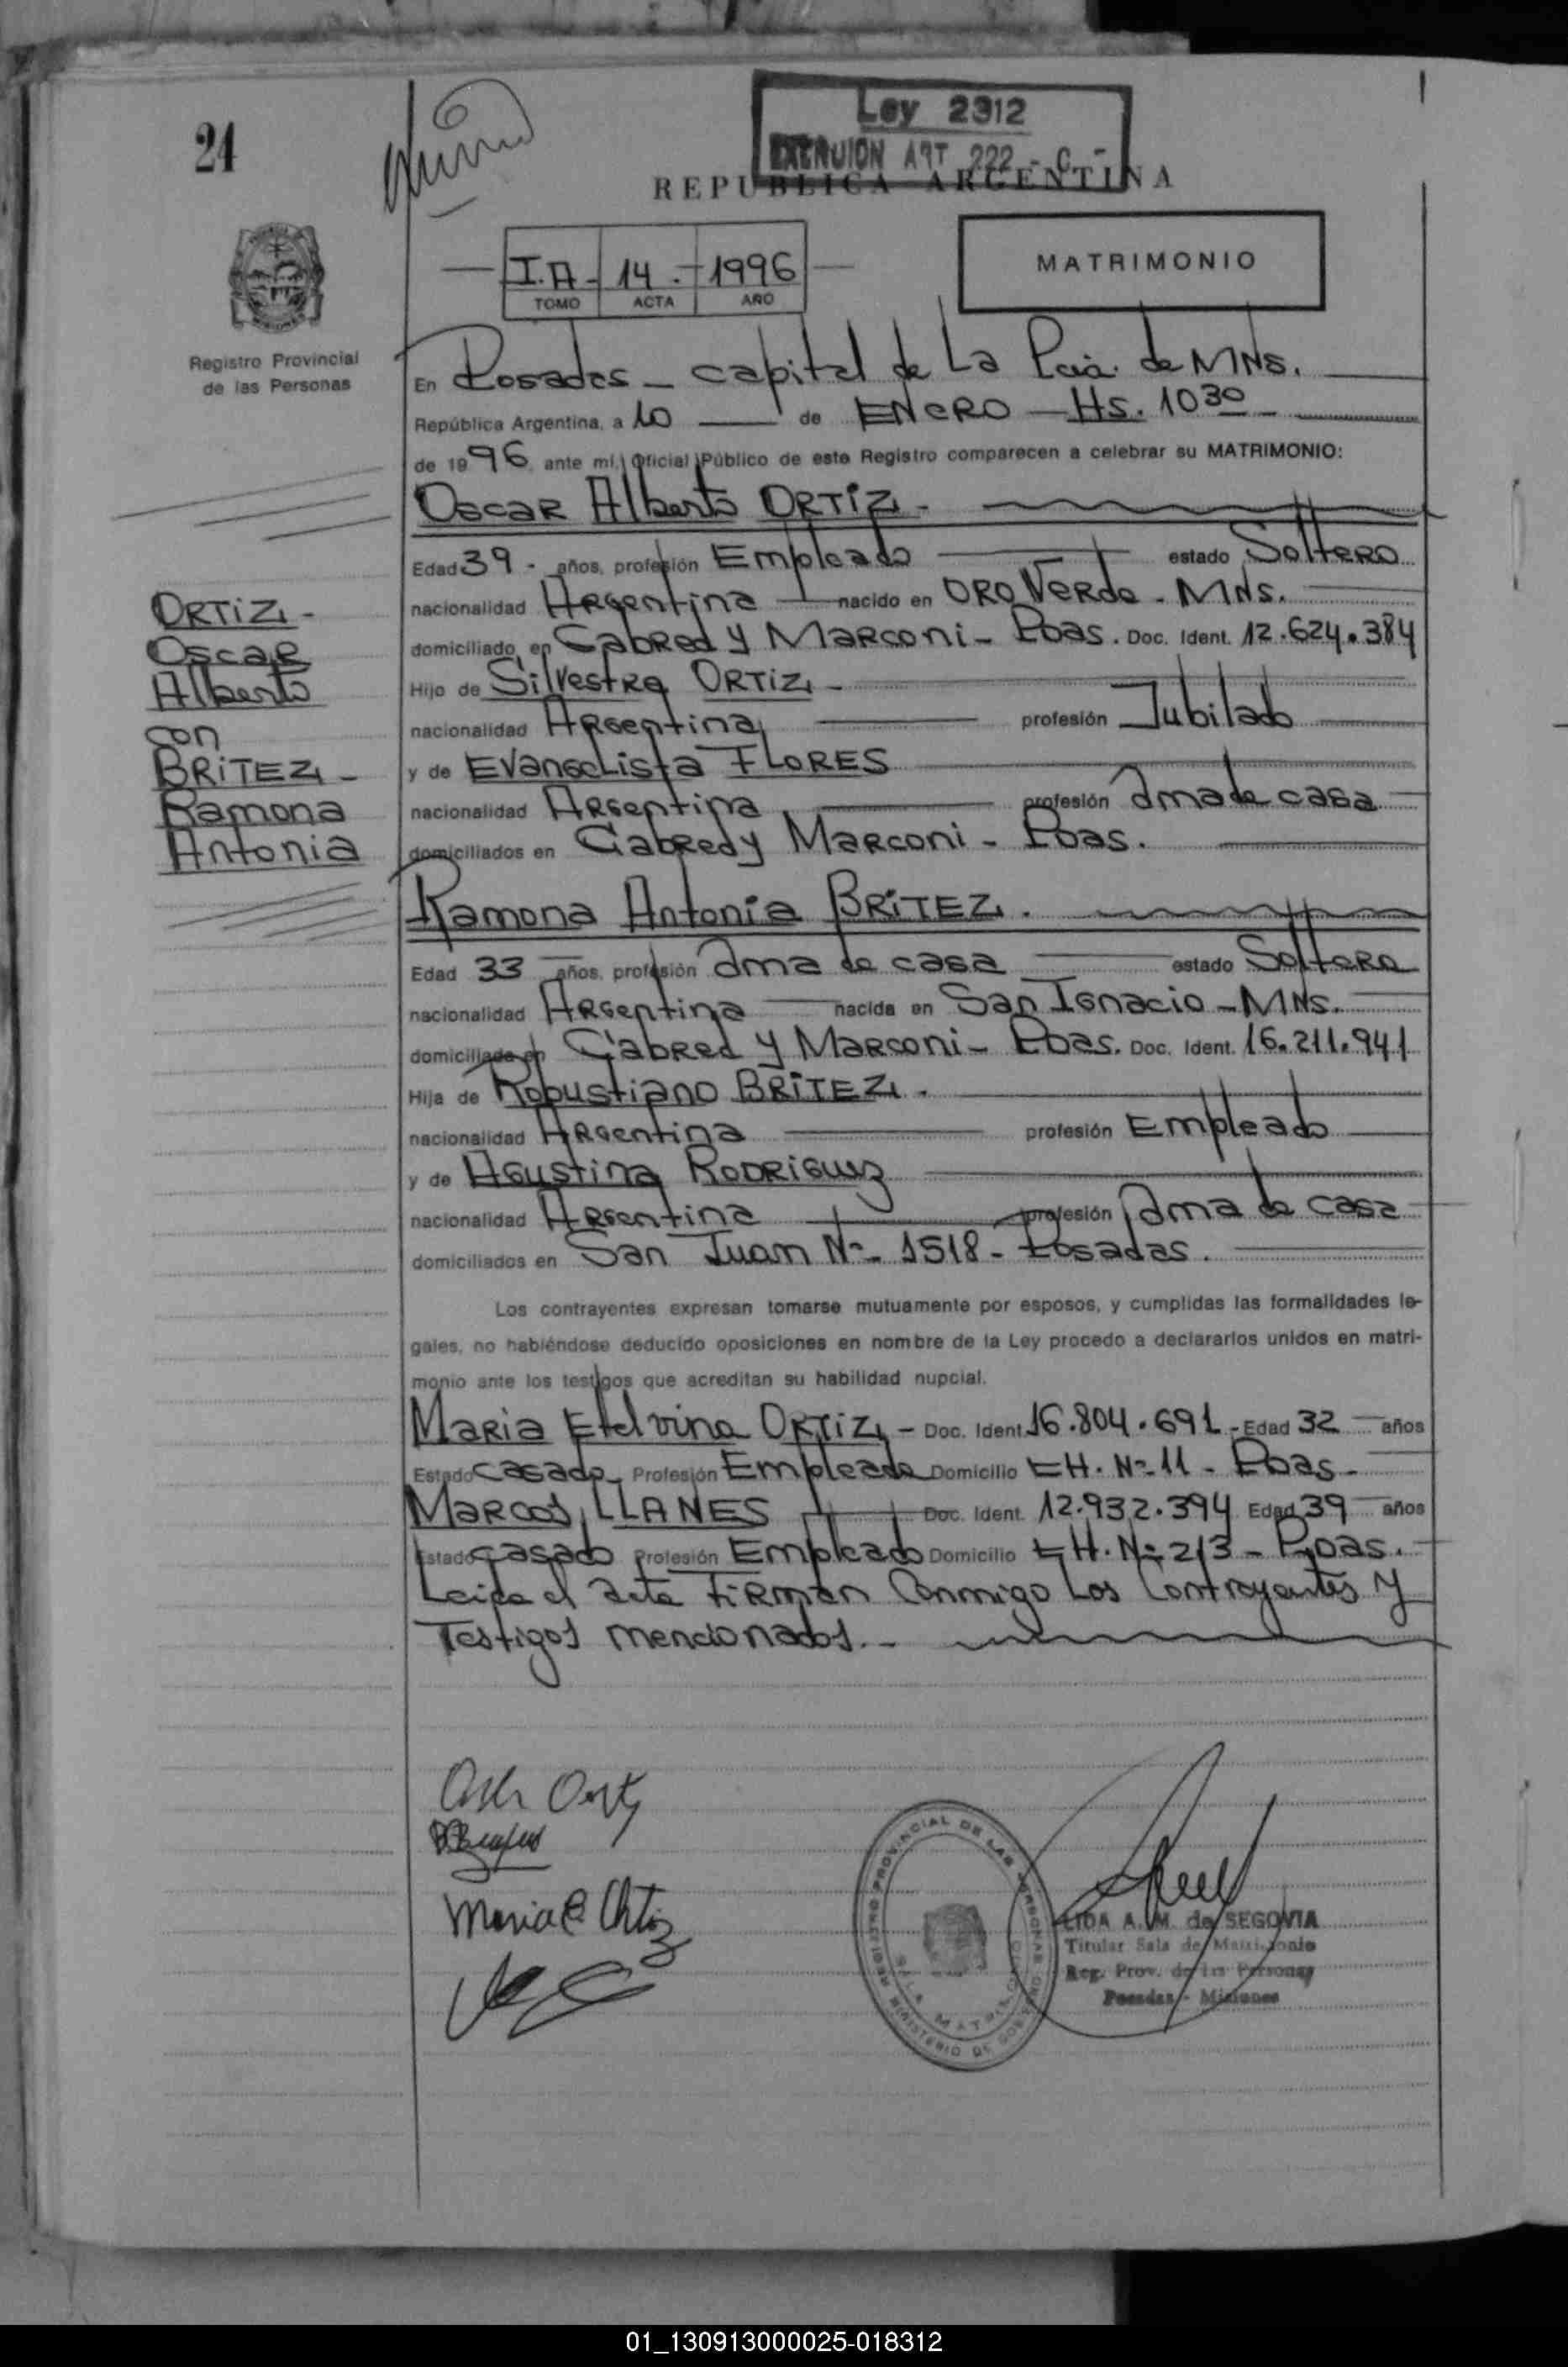 24
Ley 2312
ART 222 - C -
REPUBLICA ARGENTINA
I.A - 14 . - 1996
TOMO ACTA AÑO
MATRIMONIO
Registro Provincial
de las Personas
En Posadas - capital de La Pcia. de MNS.
República Argentina, a 10 de ENERO - Hs. 10 30
de 1996, ante mí, Oficial Público de este Registro comparecen a celebrar su MATRIMONIO:
Oscar Alberto ORTIZ -
Edad 39 - años, profesión Empleado estado Soltero
nacionalidad Argentina nacido en ORO Verde - MNS.
domiciliado en Cabred y Marconi - Pdas. Doc. Ident. 12.624.384
Hijo de Silvestre ORTIZ -
nacionalidad Argentina profesión Jubilado
y de Evangelista FLORES
nacionalidad Argentina profesión Ama de casa
domiciliados en Cabred y Marconi - Pdas.
Ramona Antonia BRITEZ .
Edad 33 años, profesión Ama de casa estado Soltera
nacionalidad Argentina nacida en San Ignacio - MNS.
domiciliada en Cabred y Marconi - Pdas. Doc. Ident. 16.211.941
Hija de Robustiano BRITEZ .
nacionalidad Argentina profesión Empleado
y de Agustina RODRIGUEZ
nacionalidad Argentina profesión Ama de casa
domiciliados en San Juan Nº 1518 - Posadas .
ORTIZ -
Oscar
Alberto
con
BRITEZ -
Ramona
Antonia
Los contrayentes expresan tomarse mutuamente por esposos, y cumplidas las formalidades le-
gales, no habiéndose deducido oposiciones en nombre de la Ley procedo a declararlos unidos en matri-
monio ante los testigos que acreditan su habilidad nupcial.
Maria Etelvina ORTIZ - Doc. Ident. 16.804.691 - Edad 32 años
Estado casada Profesión Empleada Domicilio CH. Nº 11 - Pdas -
Marcos LLANES Doc. Ident. 12.932.394 Edad 39 años
Estado casado Profesión Empleado Domicilio CH. Nº 213 - Pdas.
Leida el acta Firman Conmigo Los Contrayentes y
Testigos mencionados. -
Maria E. Ortiz
REGISTRO PROVINCIAL DE LAS PERSONAS
MINISTERIO DE GOBIERNO
LIDA A. M. de SEGOVIA
Titular Sala de Matrimonio
Reg. Prov. de las Personas
Posadas - Misiones
01_130913000025-018312